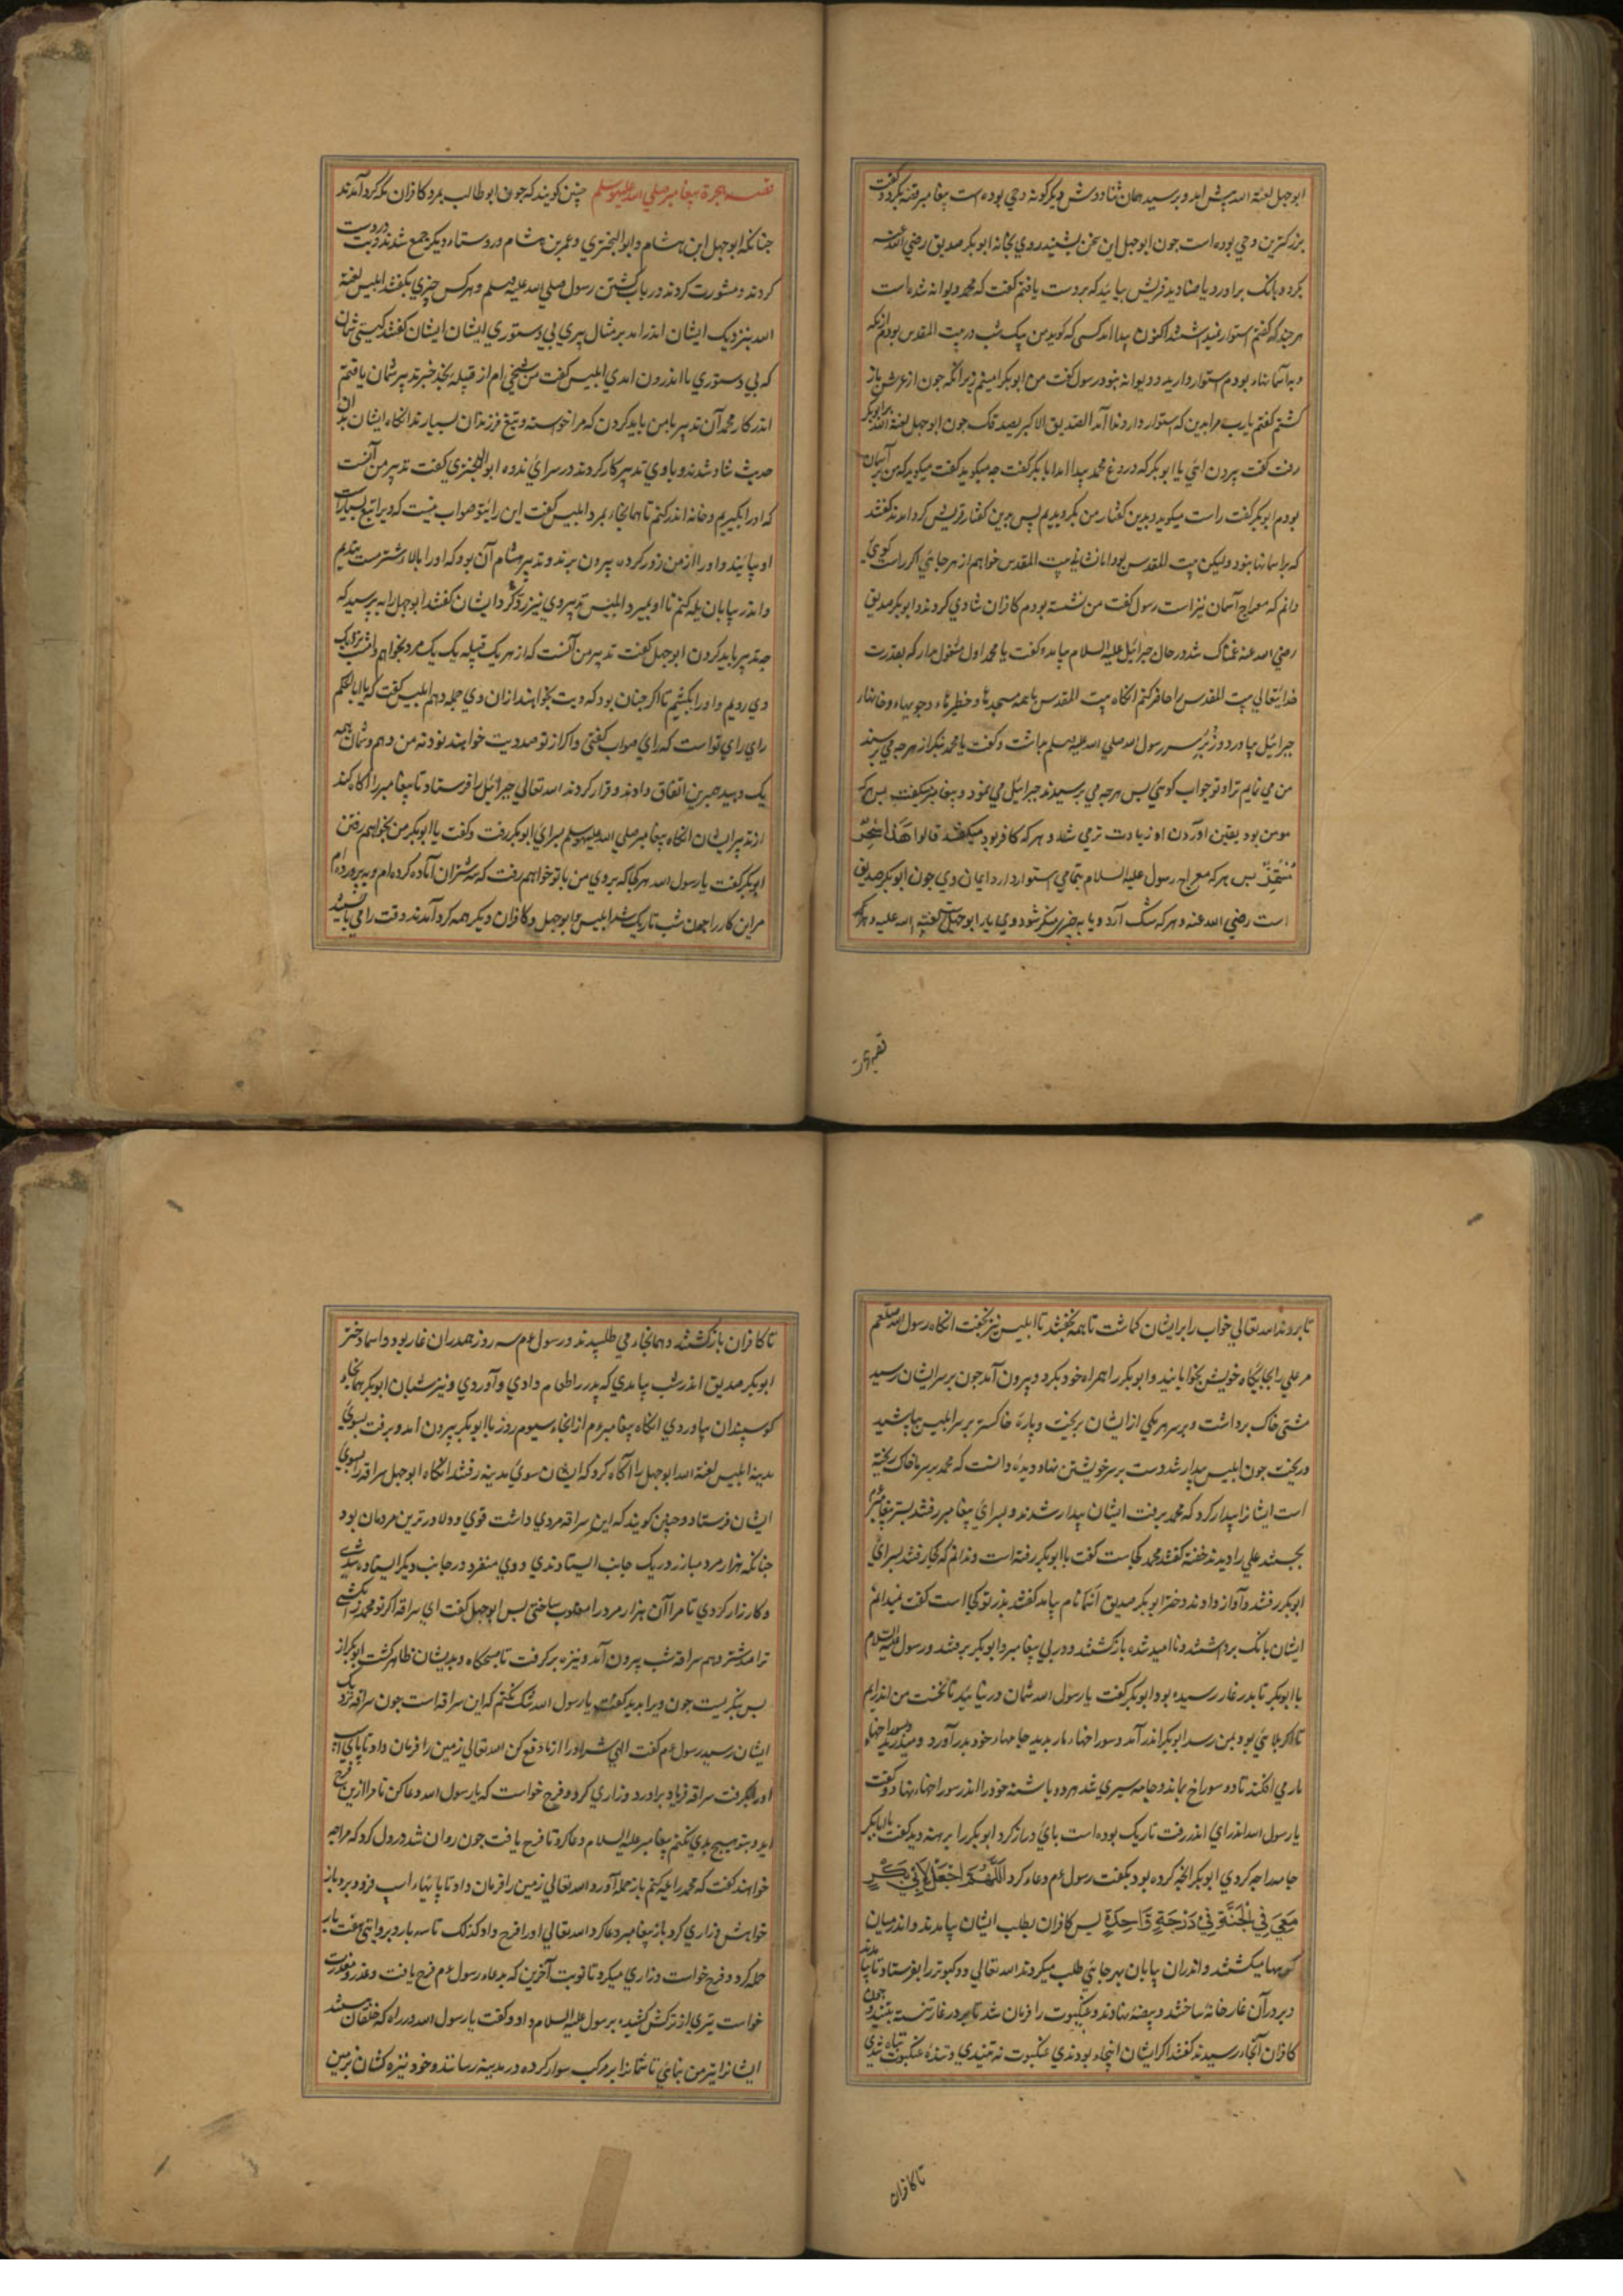 ابوجهل لعنة الله پیش امد و پرسید همان شاد دوش دیگر گونه وحی بوده است پیغامبر قصه بکرد و گفت
بزرکترین وحی بوده است جون ابوجهل این سخن بشنید روی بخانه ابوبکر صدیق رضی الله عنه
کرد و بانک براورد یا صنادید قریش بیائید که بر دست یافتم کفت که محمد دیوانه شده است
هر جند که کفتم استوار نمیداشتند اکنون پیدا امد کسی که کوید من یک شب در بیت المقدس بودم
و به آسمانها بودم استوار دارید و دیوانه نبود رسول کفت من ابوبکر امینم زیرانکه جون از عرش باز
کشتم کفتم یارب مرا بدین که استوار دارد ندا آمد الصدیق الاکبر یصدقک جون ابوجهل لعنة الله
رفت کفت بیرون ائی یا ابوبکر که دروغ محمد پیدا امد ابابکر کفت جه میکوید کفت میکوید که من بر آسمان
بودم ابوبکر کفت راست میکوید و بدین کفتار من بکرویدیم پس بدین کفتار قریش کرد امدند کفتند
که بر اسمانها بنود ولیکن بیت المقدس بود اما نشانیهاء بیت المقدس خواهم از هر جائی اکر راست کوئی
دانم که معراج آسمان نیز است رسول کفت من نشسته بودم کافران شادی کردند و ابوبکر صدیق
رضی الله عنه غمناک شد در حال جبرائیل علیه السلام بیامد و کفت یا محمد اول مشغول مدار که بقدرت
خدایتعالی بیت المقدس را حاضر کنم انکاه بیت المقدس با همه مسجدها و حظیرها و جویهاء و خانها
جبرائیل بیاورد و زبر سر رسول الله صلی الله علیه وسلم بداشت و کفت یا محمد بنکر از هر جه می پرسند
من می نمایم ترا و تو جواب کوئی پس هر جه می پرسیدند جبرائیل می نمود و پیغامبر میکفت پس هر که
مومن بود یقین اوردن او زیادت تر می شد و هر که کافر بود میکفتند قالوا هذا سحر
مستمر پس هر که معراج رسول علیه السلام بتمامی استوار دارد ایمان وی جون ابوبکر صدیق
است رضی الله عنه و هر که شک آرد و یا به جیزی منکر شود وی یار ابوجهل است لعنة الله علیه و هر که
قصه هجرت
قصه هجرة پیغامبر صلی الله علیه وسلم جنین کویند که جون ابو طالب بمرد کافران مکه کرد آمدند
جنانکه ابوجهل ابن هشام و ابو البختری و عمر بن هشام و دوستاء دیکر جمع شدند
کردند و مشورت کردند در باب کشتن رسول صلی الله علیه وسلم و هر کس جیزی بکفتند ابلیس لعنة
الله بنزدیک ایشان اندر امد بر مثال پیری بی دستوری ایشان ایشان کفتند کیستی
که بی دستوری ما اندرون امدی ابلیس کفت من شیخی ام از قبیله نجد خبر تدبیر شمان یافتم
اندر کار محمد آن تدبیر با من باید کردن که مرا خواسته و تیغ فرزندان بسیارند انکاه ایشان بدان
حدیث شاد شدند و با وی تدبیر کار کردند در سرای ندوه ابو البختری کفت تدبیر من آنست
که او را بگیریم و خانه اندر کنم تا همانجاء بمرد ابلیس کفت این رای تو صواب نیست که ویرا تبع بسیار است
او بیایند و او را از من زور کرده بیرون برند و تدبیر هشام آن بود که او را بالاء شتر مست بندیم
و اندر بیابان یله کنم تا او بمیرد ابلیس تدبیر وی نیز رد کرد ایشان کفتند ابوجهل را به پرسید که
جه تدبیر باید کردن ابوجهل کفت تدبیر من آنست که از هر یک قبیله یک یک مرد بخواهم و امشب نزدیک
وی رویم و او را بکشیم تا اکر جنان بود که دیت بخواهند از ان دی جمله دهم ابلیس کفت که یا ابا الحکم
رای رای تو است که رای صواب کفتی و اکر از تو صد دیت خواهند بود نه من دهم و شمان همه
یک دهید همبرین اتفاق دادند و قرار کردند الله تعالی جبرائیل را فرستاد تا پیغامبر را آکاه کند
از تدبیر ایشان انکاه پیغامبر صلی الله علیه وسلم بسرای ابوبکر رفت و کفت یا ابوبکر من بخواهم رفتن
ابوبکر کفت یا رسول الله هر کجا که بروی من با تو خواهم رفت که سه شتران آماده کرده ام و بپرورده ام
مر این کار را جون شب تاریک شد ابلیس و ابوجهل و کافران دیکر همه کرد آمدند وقت را می پائیدند
تا بروند الله تعالی خواب را بر ایشان کماشت تا همه بخفتند تا ابلیس نیز بخفت انکاه رسول الله صلعم
مر علی را بجایکاه خویش بخوابانید و ابوبکر را همراه خود بکرد و بیرون آمد جون بر سر ایشان رسید
مشتی خاک برداشت و بر سر هر یکی از ایشان بریخت و پاره خاکستر بر سر ابلیس بپاشید
و ریخت جون ابلیس بیدار شد دست بر سر خویشتن نهاد و دید و دانست که محمد بر سر ما خاک ریخته
است ایشانرا بیدار کرد که محمد برفت ایشان بیدار شدند و بسرای پیغامبر رفتند بستر پیغامبر
بجستند علی را دیدند خفته کفتند محمد کجاست کفت با ابوبکر رفته است و ندانم که کجا رفتند بسرای
ابوبکر رفتند و آواز دادند دختر ابوبکر صدیق اسما نام بیامد کفتند پدر تو کجا است کفت نمیدانم
ایشان بانک برداشتند و نا امید شده بازکشتند و در پی پیغامبر و ابوبکر برفتند و رسول علیه السلام
با ابوبکر تا بدر غار رسیده بود ابوبکر کفت یا رسول الله شمان در نیائید تا نخست من اندر ایم
تا اکر بلائی بود بمن رسد ابوبکر اندر آمد و سوراخهاء مار بدید جامهاء خود بدر آورد و میدرید و سوراخهاء
مار می افکند تا دو سوراخ بماند و جامه سپری شد هر دو پاشنه خود را اندر سوراخهاء نهاد و کفت
یا رسول الله اندر ای اندر رفت تاریک بوده است پای دراز کرد ابوبکر را برهنه دید کفت یا ابابکر
جامه را جه کردی ابوبکر انجه کرده بود بکفت رسول عم دعاء کرد اللهم اجعل لابی بکر
معی فی الجنة فی درجة واحدة پس کافران بطلب ایشان بیامدند و اندر میان
کوهها میکشتند و اندران بیابان بهر جائی طلب میکردند الله تعالی دو کبوتر را بفرستاد تا بیامدند
و بر در آن غار خانه ساختند و بیضه نهادند و عنکبوت را فرمان شد تا بر در غار تنسته بتنید و جون
کافران آنجاء رسیدند کفتند اکر ایشان اینجاء بودندی عنکبوت نه تنیدی و تنیده عنکبوت تباه شدی
تا کافران
تا کافران بازکشتند و همانجاء می طلبیدند و رسول عم سه روز همدران غار بود و اسما دختر
ابوبکر صدیق اندر شب بیامدی که پدر را طعام دادی و آوردی و نیز شبان ابوبکر همانجاء
کوسپندان بیاوردی انکاه پیغامبر عم از انجاء سیوم روز با ابوبکر بیرون امد و برفت بسوی
مدینه ابلیس لعنة الله ابوجهل را آکاه کرد که ایشان سوی مدینه رفتند انکاه ابوجهل سراقه را بسوی
ایشان فرستاد و جنین کویند که این سراقه مردی داشت قوی و دلاورترین مردمان بود
جنانکه هزار مرد مبارز در یک جانب ایستادندی و وی منفرد در جانب دیکر ایستاده شدی
و کارزار کردی تا مر آن هزار مرد را مغلوب ساختی پس ابوجهل کفت ای سراقه اکر تو محمد را بکشی
ترا صد شتر دهم سراقه شب بیرون آمد و نیزه برکرفت تا صبحکاه و بدیشان ظاهر کشت ابوبکر از
پس بنکریست جون ویرا بدید کفت یا رسول الله شک نکنم که این سراقه است جون سراقه نزدیک
ایشان رسید رسول عم کفت الهی شر او را از ما دفع کن الله تعالی زمین را فرمان داد تا پای اسپ
او را بکرفت سراقه فریاد براورد و زاری کرد و فرج خواست که یا رسول الله دعا کن تا مرا ازین فرج
اید و بتو هیچ بدی نکنم پیغامبر علیه السلام دعا کرد تا فرج یافت جون روان شد در دل کرد که مرا جه
خواهند کفت که محمد را یله کنم باز حمله آورد الله تعالی زمین را فرمان داد تا پایهاء اسپ فرو برد باز
خواهش و زاری کرد باز پیغامبر دعا کرد الله تعالی او را فرج داد کذلک تا سه بار و بروایتی هفت بار
حمله کرد و فرج خواست و زاری میکرد تا نوبت آخرین که بدعاء رسول عم فرج یافت و عذر و معذرت
خواست تیری از ترکش کشیده برسول علیه السلام داد و کفت یا رسول الله در راه که خلقان بینند
ایشانرا تیر من بنمای تا شمانرا بر مرکب سوار کرده در مدینه رسانند و خود نیزه کشان بزمین